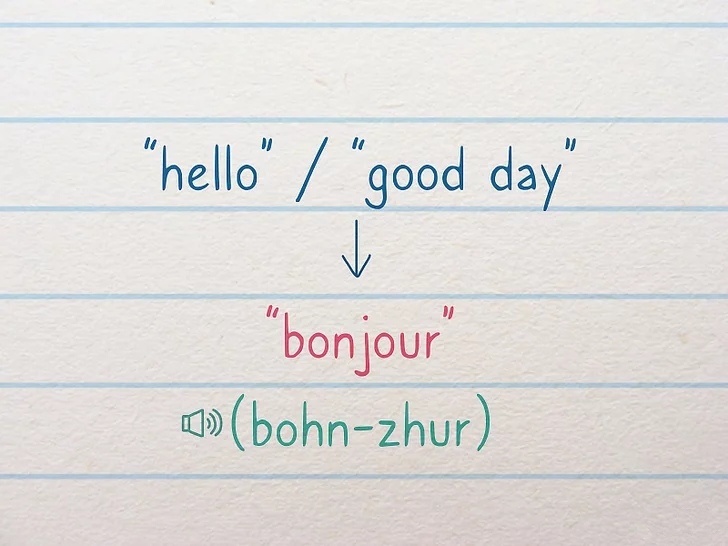 “hello” / “good day”
“bonjour”
(bohn-zhur)